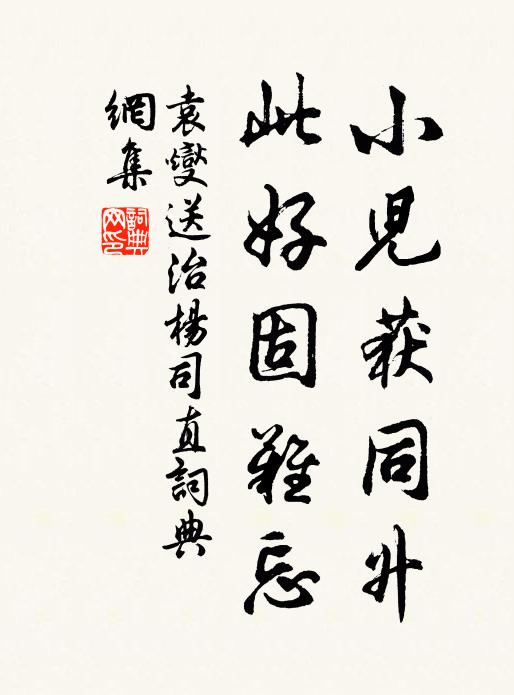 小児获同升
此好固難忘
袁燮送治楊司直詞典
網集
詞典網印